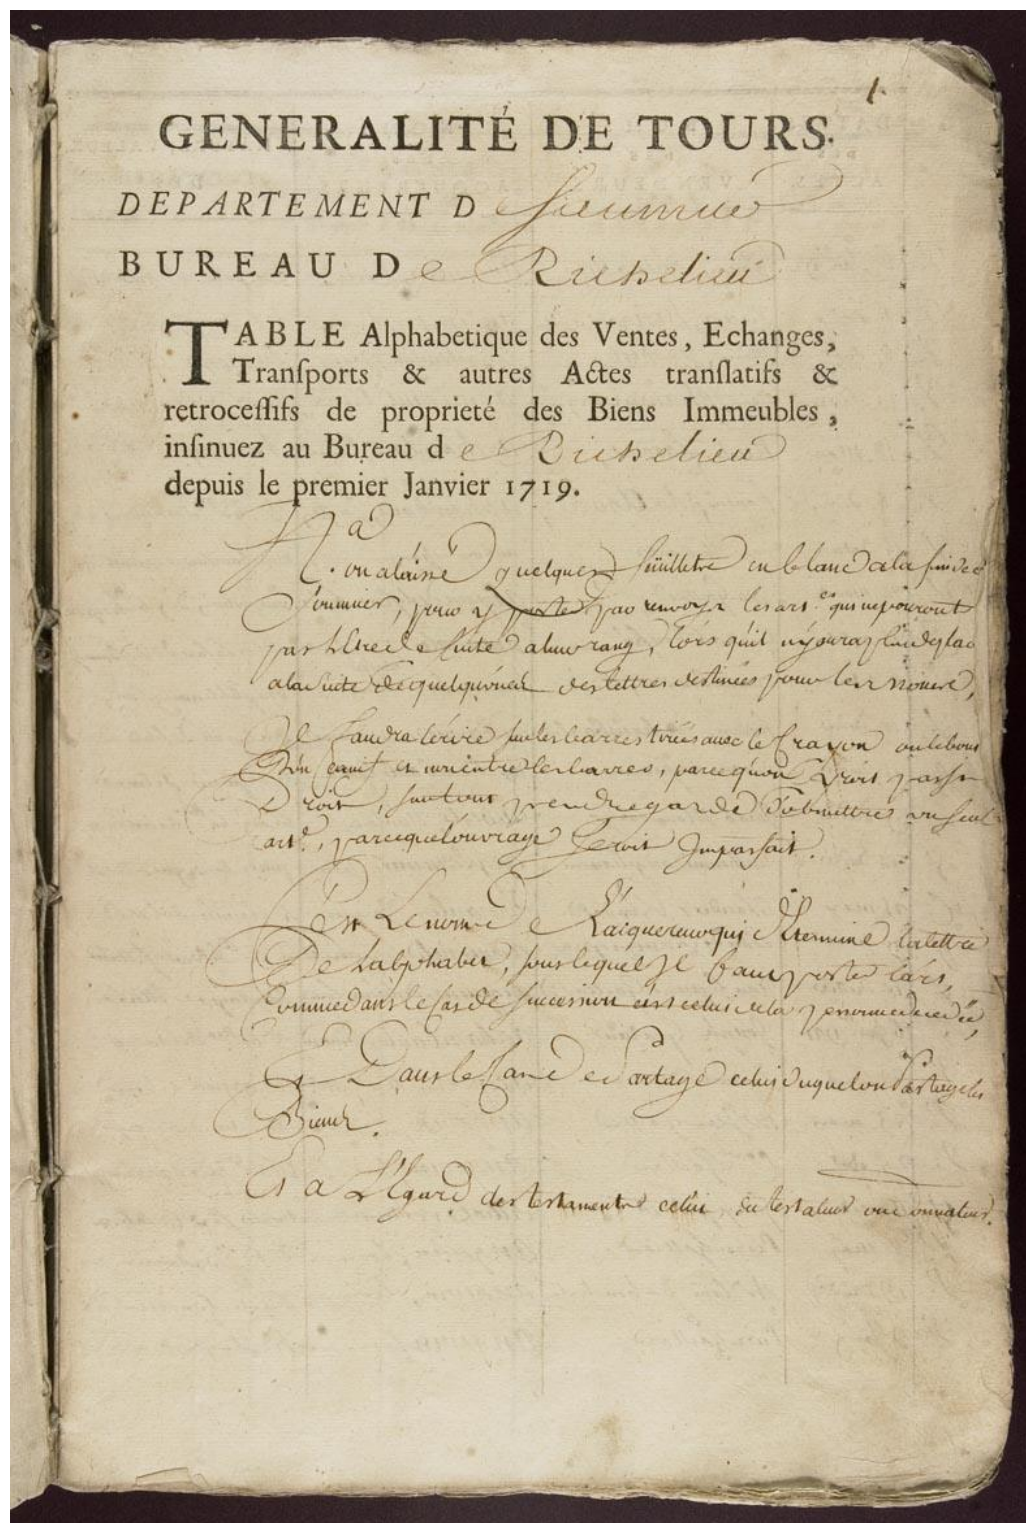 1.
GENERALITÉ DE TOURS.
DEPARTEMENT D
BUREAU De Richelieu
TABLE Alphabetique des Ventes, Echanges,
Tranſports & autres Actes tranſlatifs &
retroceſſifs de proprieté des Biens Immeubles,
inſinuez au Bureau de Richelieu
depuis le premier Janvier 1719.
Nª
on a laissé quelques feüillets en blanc a la fin de ce
Sommier, pour y porter par renvoy les art.es qui ne pouront
pas Estre de suite a leur rang, lors qu'il n'y aura plus de place
a la suite de quelqu'unes des lettres destinées pour les noms,
Il faudra écrire sur les barres tirées avec le Crayon ou le bout
d'un Canif et non entre les barres, parce qu'on doit
droit, surtout prendre garde d'obmettre un seul
art.e, parce que l'ouvrage seroit Imparfait.
C'est Le nom de L'acquereur qui détermine la lettre
De L'alphabet, sous lequel Il faut porter l'art.,
Comme dans le Cas de succession c'est celui de la personne decedée,
Et Dans le Cas de Partage celui duquel on Partage les
Biens.
Et a L'Egard des testaments celui du testateur ou donnateur.